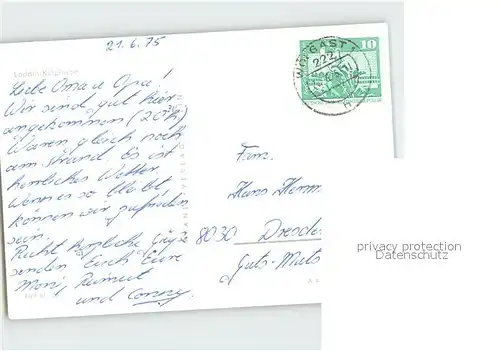 21. 6. 75
Liebe Oma u Opa!
Wir sind gut hier
angekommen (20 30 h)
Waren gleich noch
am Strand. Es ist
herrliches Wetter.
Wenn es so bleibt
können wir zufrieden
sein.
Recht herzliche Grüße
senden Euch Eure
Moni, Reimut
und Conny.
WOLGAST 1
222
10
Fam.
Hans
8030 Dresde
Guts-Muts
privacy protection
Datenschutz